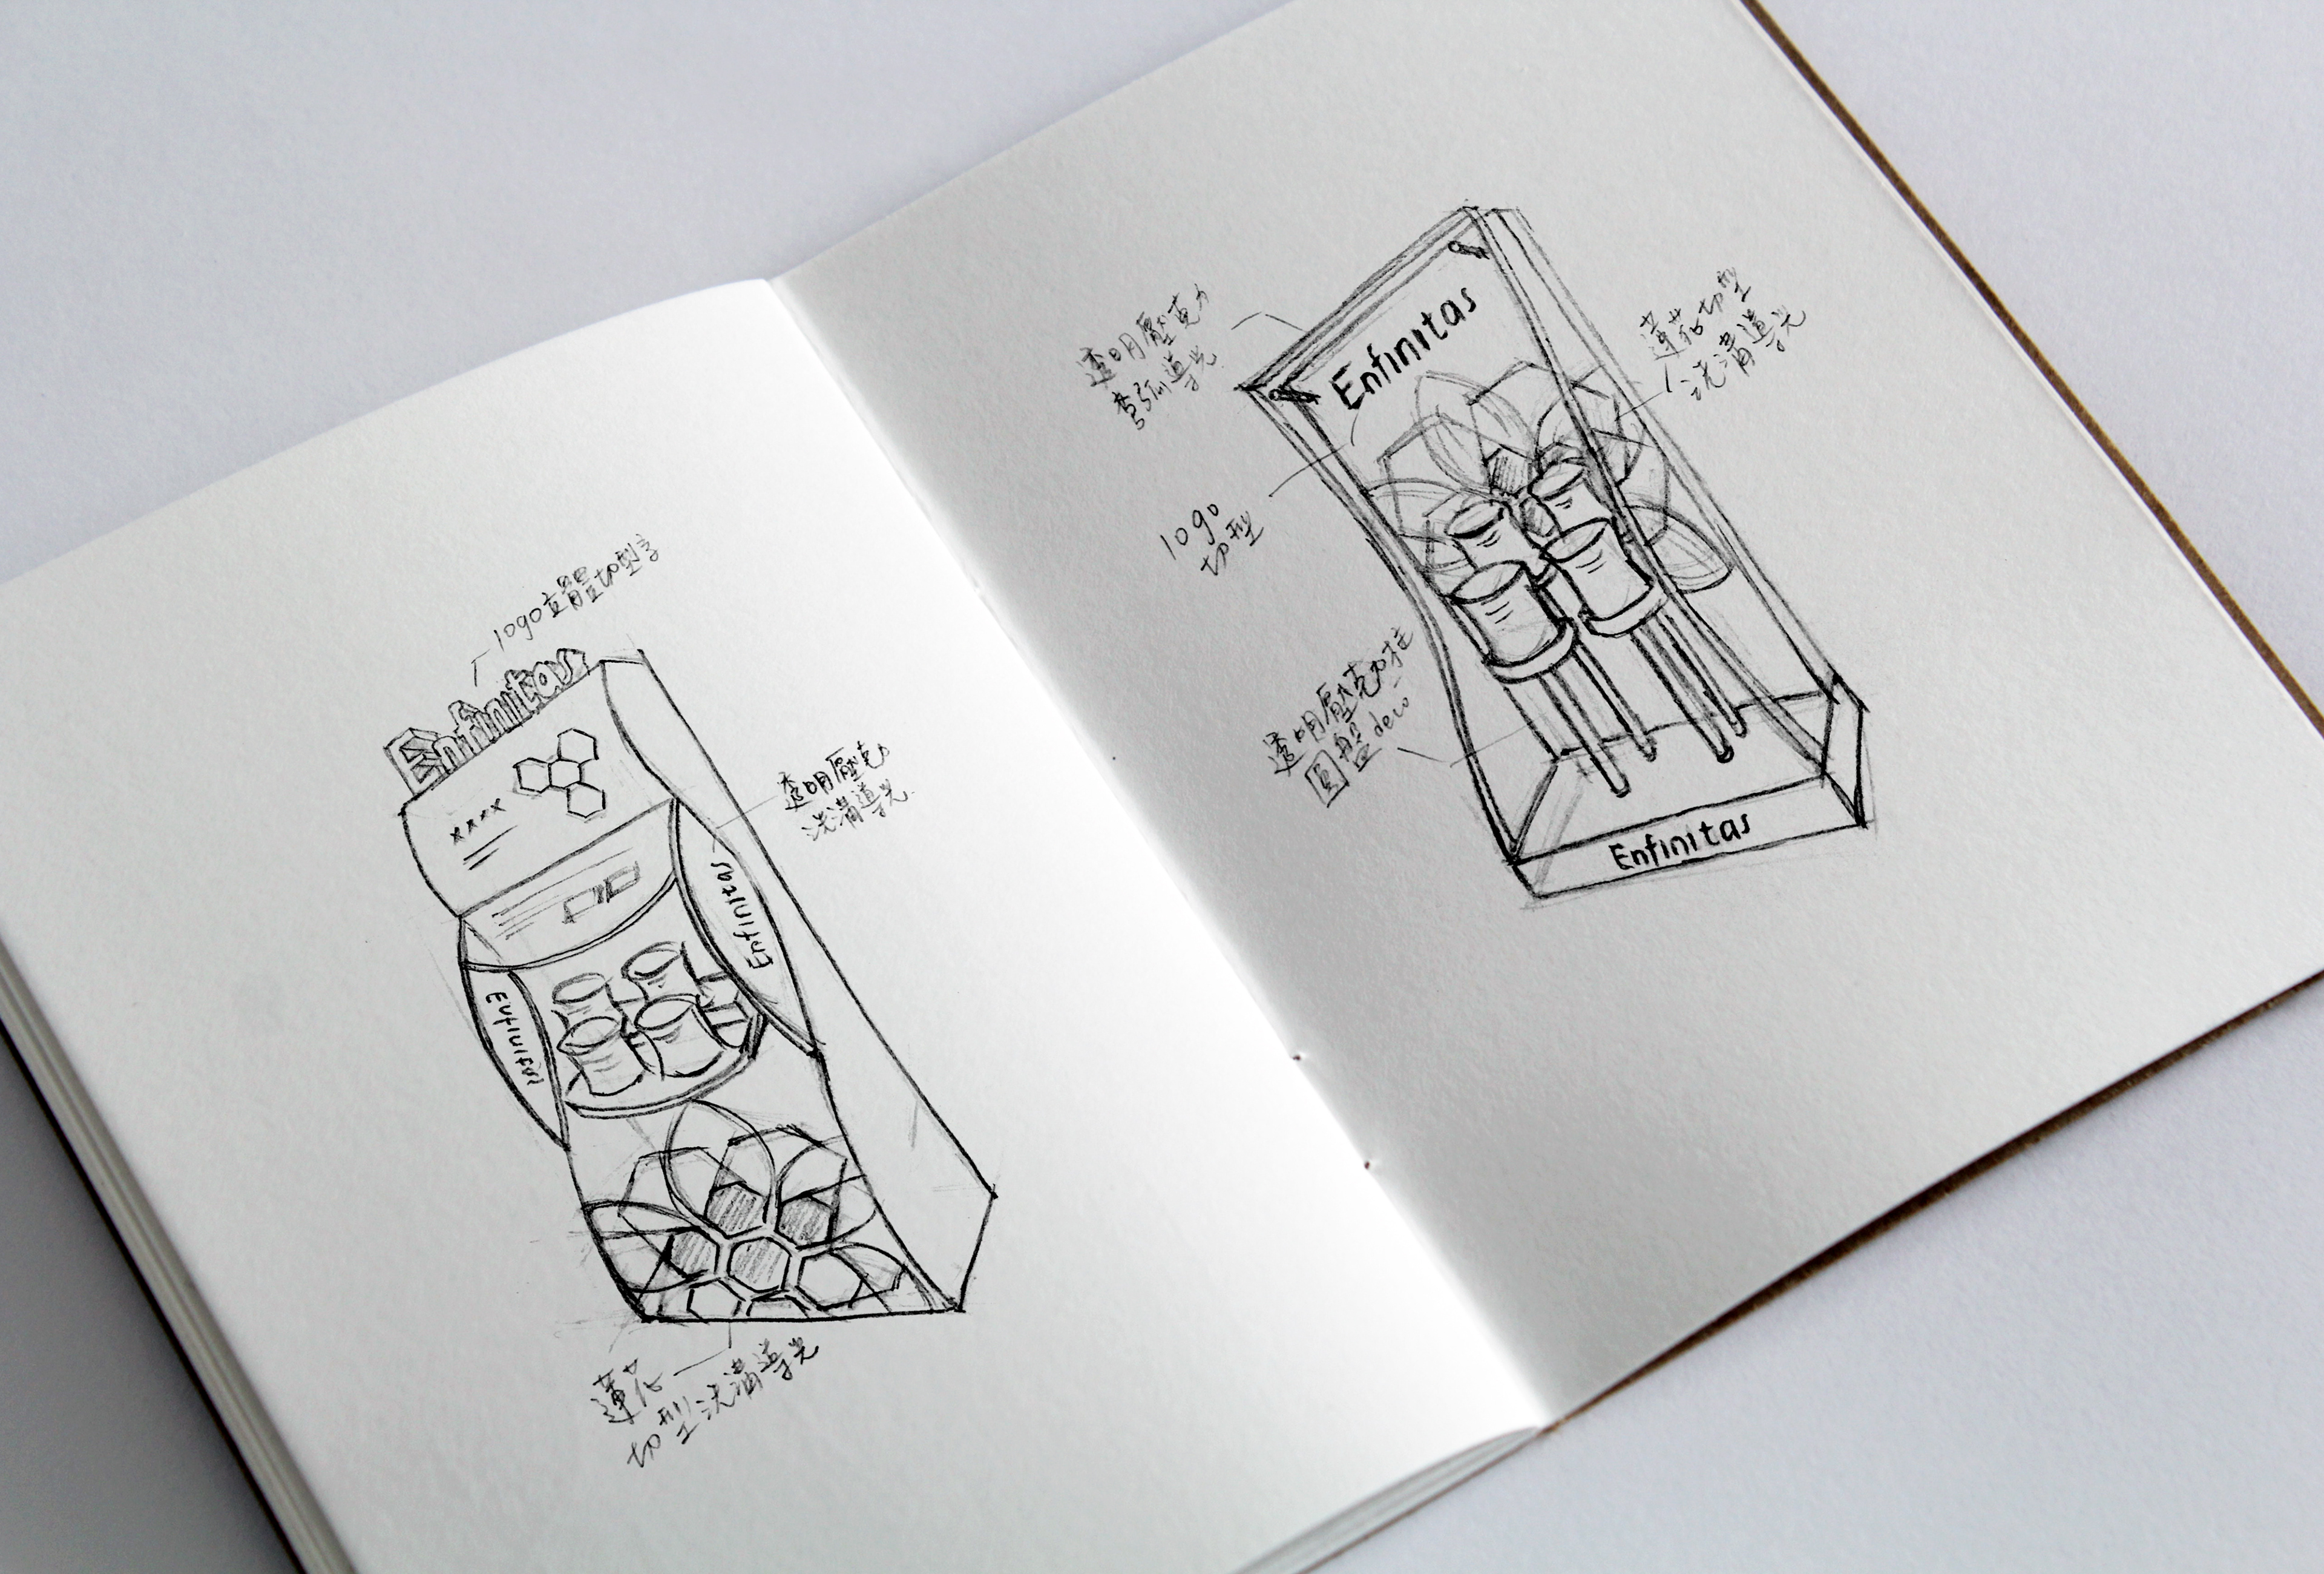 logo立體切型字
Enfinitas
xxxx
透明壓克力
洗溝導光
Enfinitas
Enfinitas
蓮花
切型洗溝導光
透明壓克力
彎弧導光
Enfinitas
蓮花切型
洗溝導光
logo
切型
透明壓克力柱
圓盤deco
Enfinitas